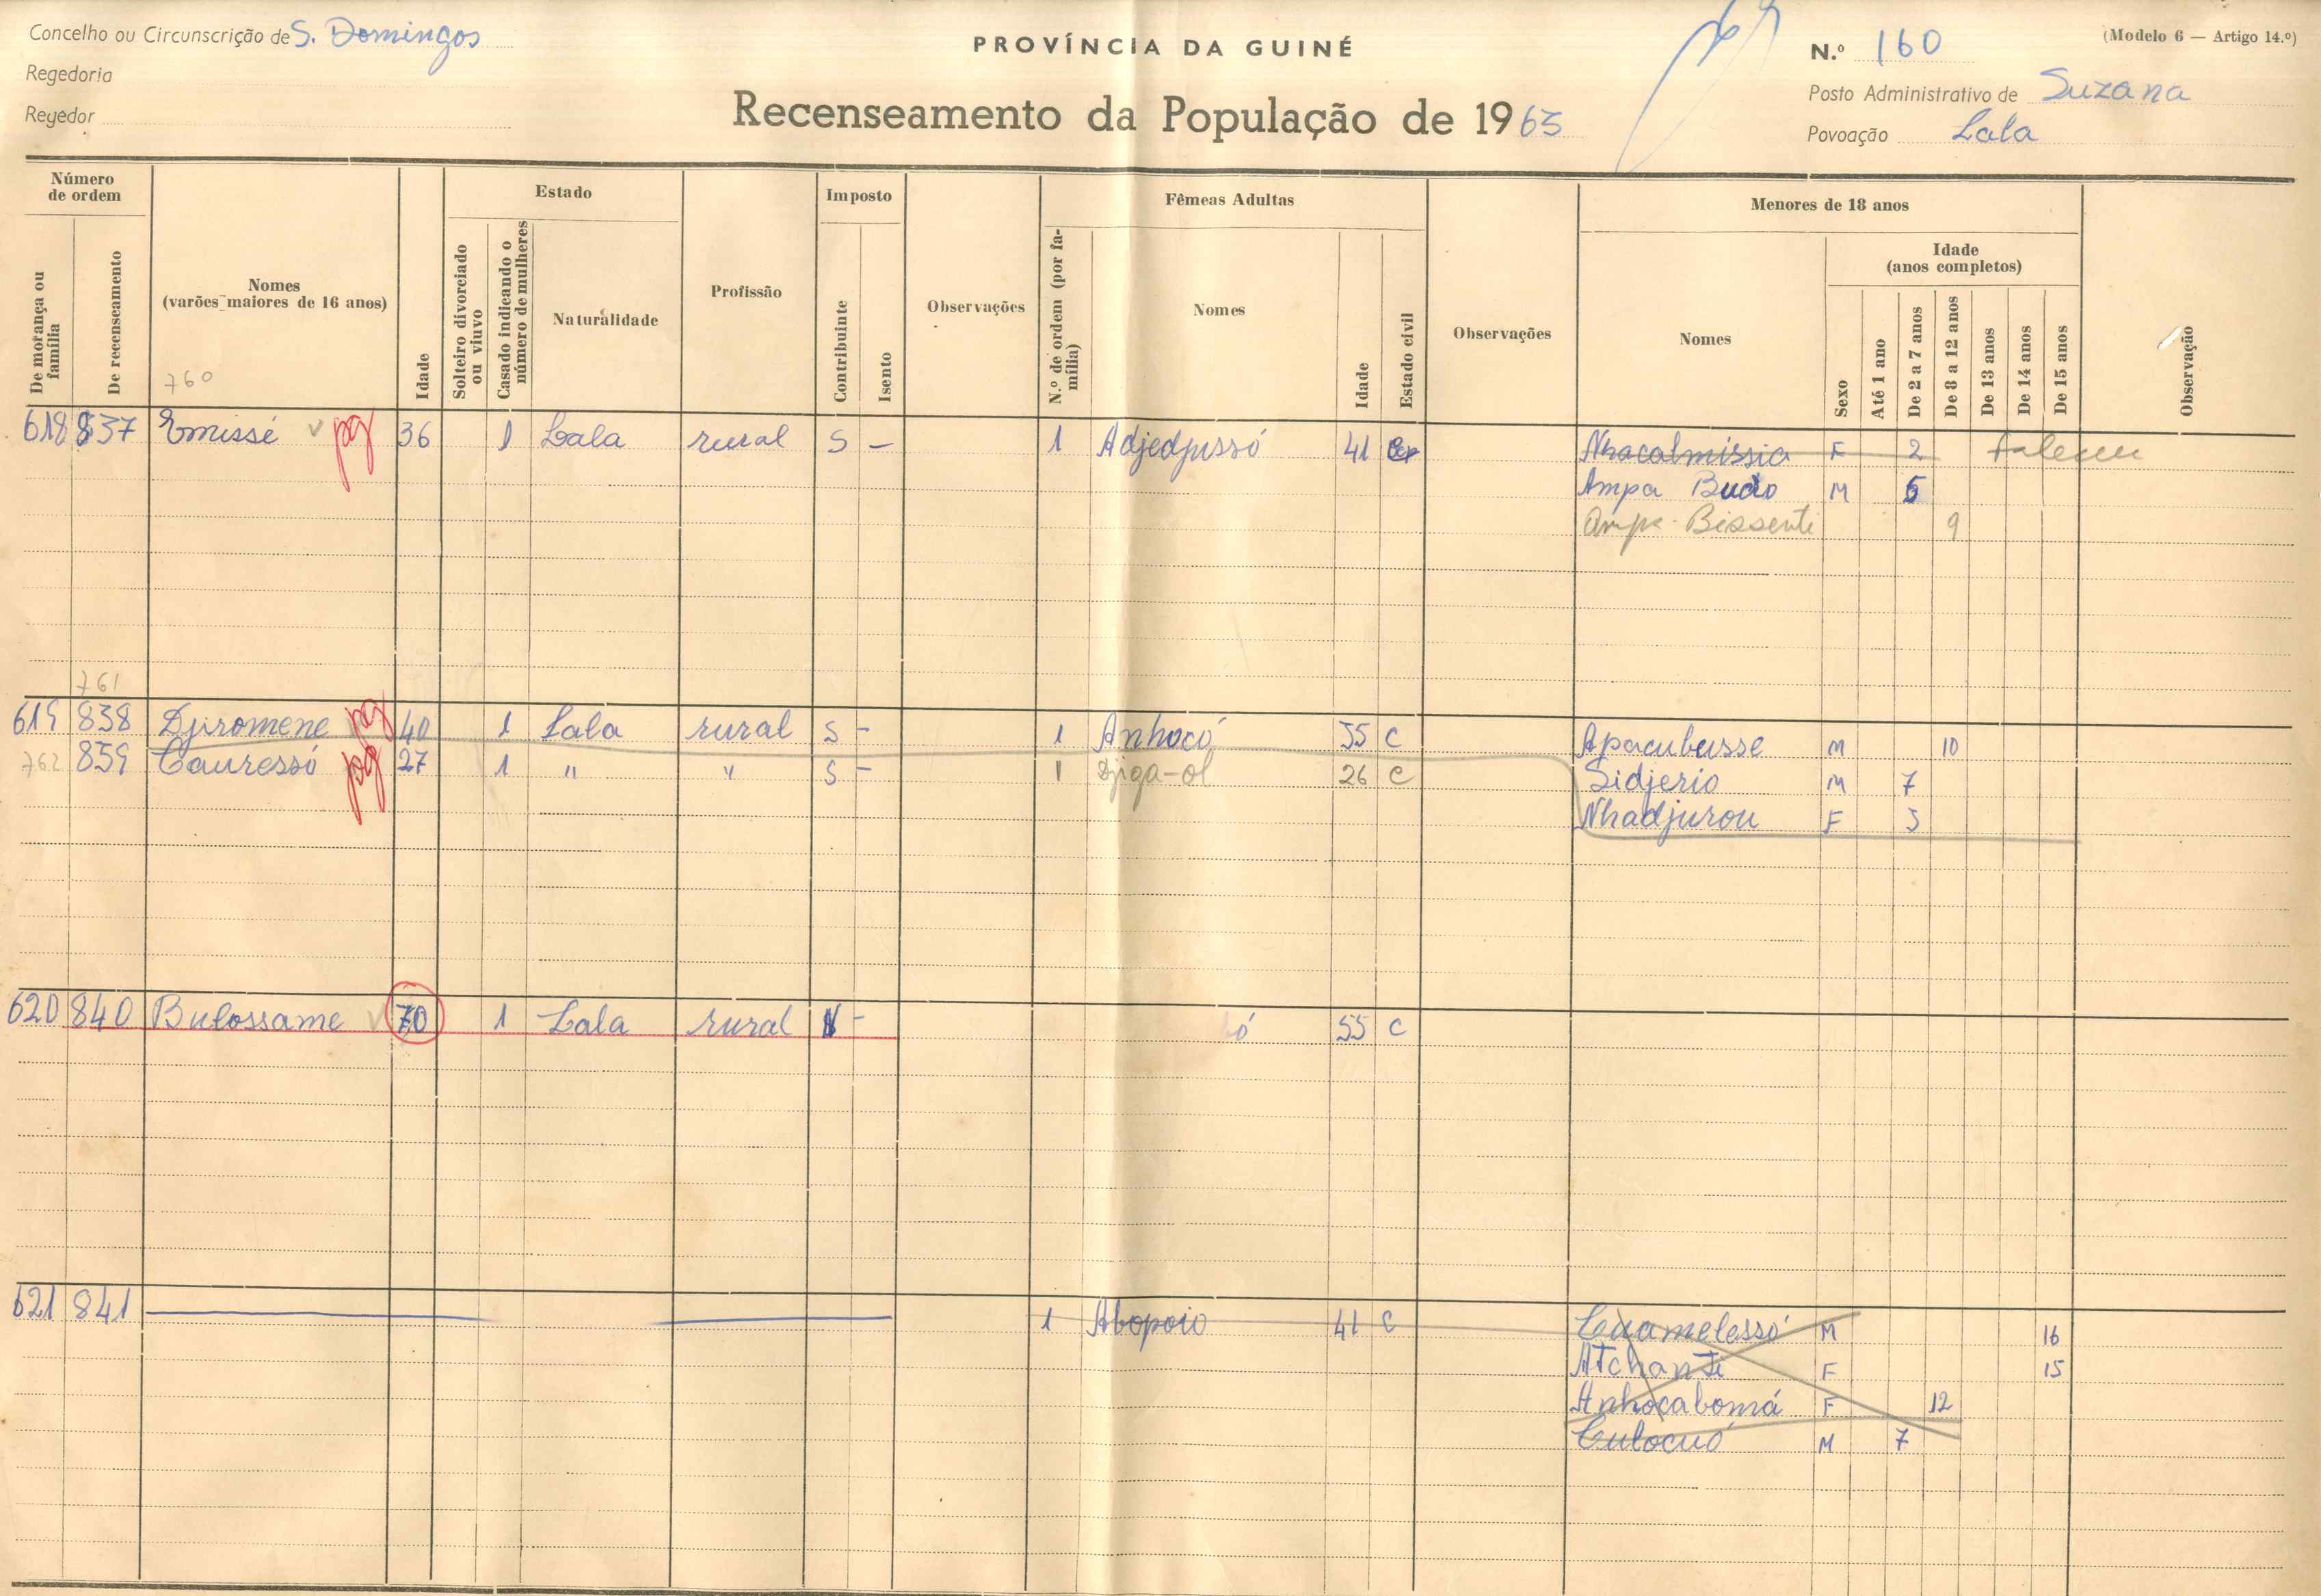 Concelho ou Circunscrição de S. Domingos
PROVÍNCIA DA GUINÉ
N.º 160
(Modelo 6 — Artigo 14.º)
Regedoria
Posto Administrativo de Suzana
Regedor
Recenseamento da População de 1965
Povoação Lala
Número de ordem
De morança ou família
De recenseamento
Nomes
(varões maiores de 16 anos)
760
Idade
Estado
Solteiro divorciado ou viuvo
Casado indicando o número de mulheres
Naturalidade
Profissão
Imposto
Contribuinte
Isento
Observações
Fêmeas Adultas
N.º de ordem (por família)
Nomes
Idade
Estado civil
Observações
Menores de 18 anos
Nomes
Sexo
Idade
(anos completos)
Até 1 ano
De 2 a 7 anos
De 8 a 12 anos
De 13 anos
De 14 anos
De 15 anos
Observação
618 837 Emissé pg 36 1 Lala rural S — 1 Adjedjussó 41 Nhacalmissia F 2
Ampa Budo M 5
Ampa Bissenti 9
761
619 838 Djiromene pg 40 1 Lala rural S — 1 Anhocó 35 C Apacubusse M 10
762 839 Cauressó pg 27 1 " " S — 1 Djiga-ol 26 C Sidjerio M 7
Nhadjurou F 5
620 840 Bulossame 70 1 Lala rural N — ó 55 C
621 841 1 Abopoio 41 C Cuamelessó M 16
Atchanti F 15
Anhocabomá F 12
Culocuó M 7